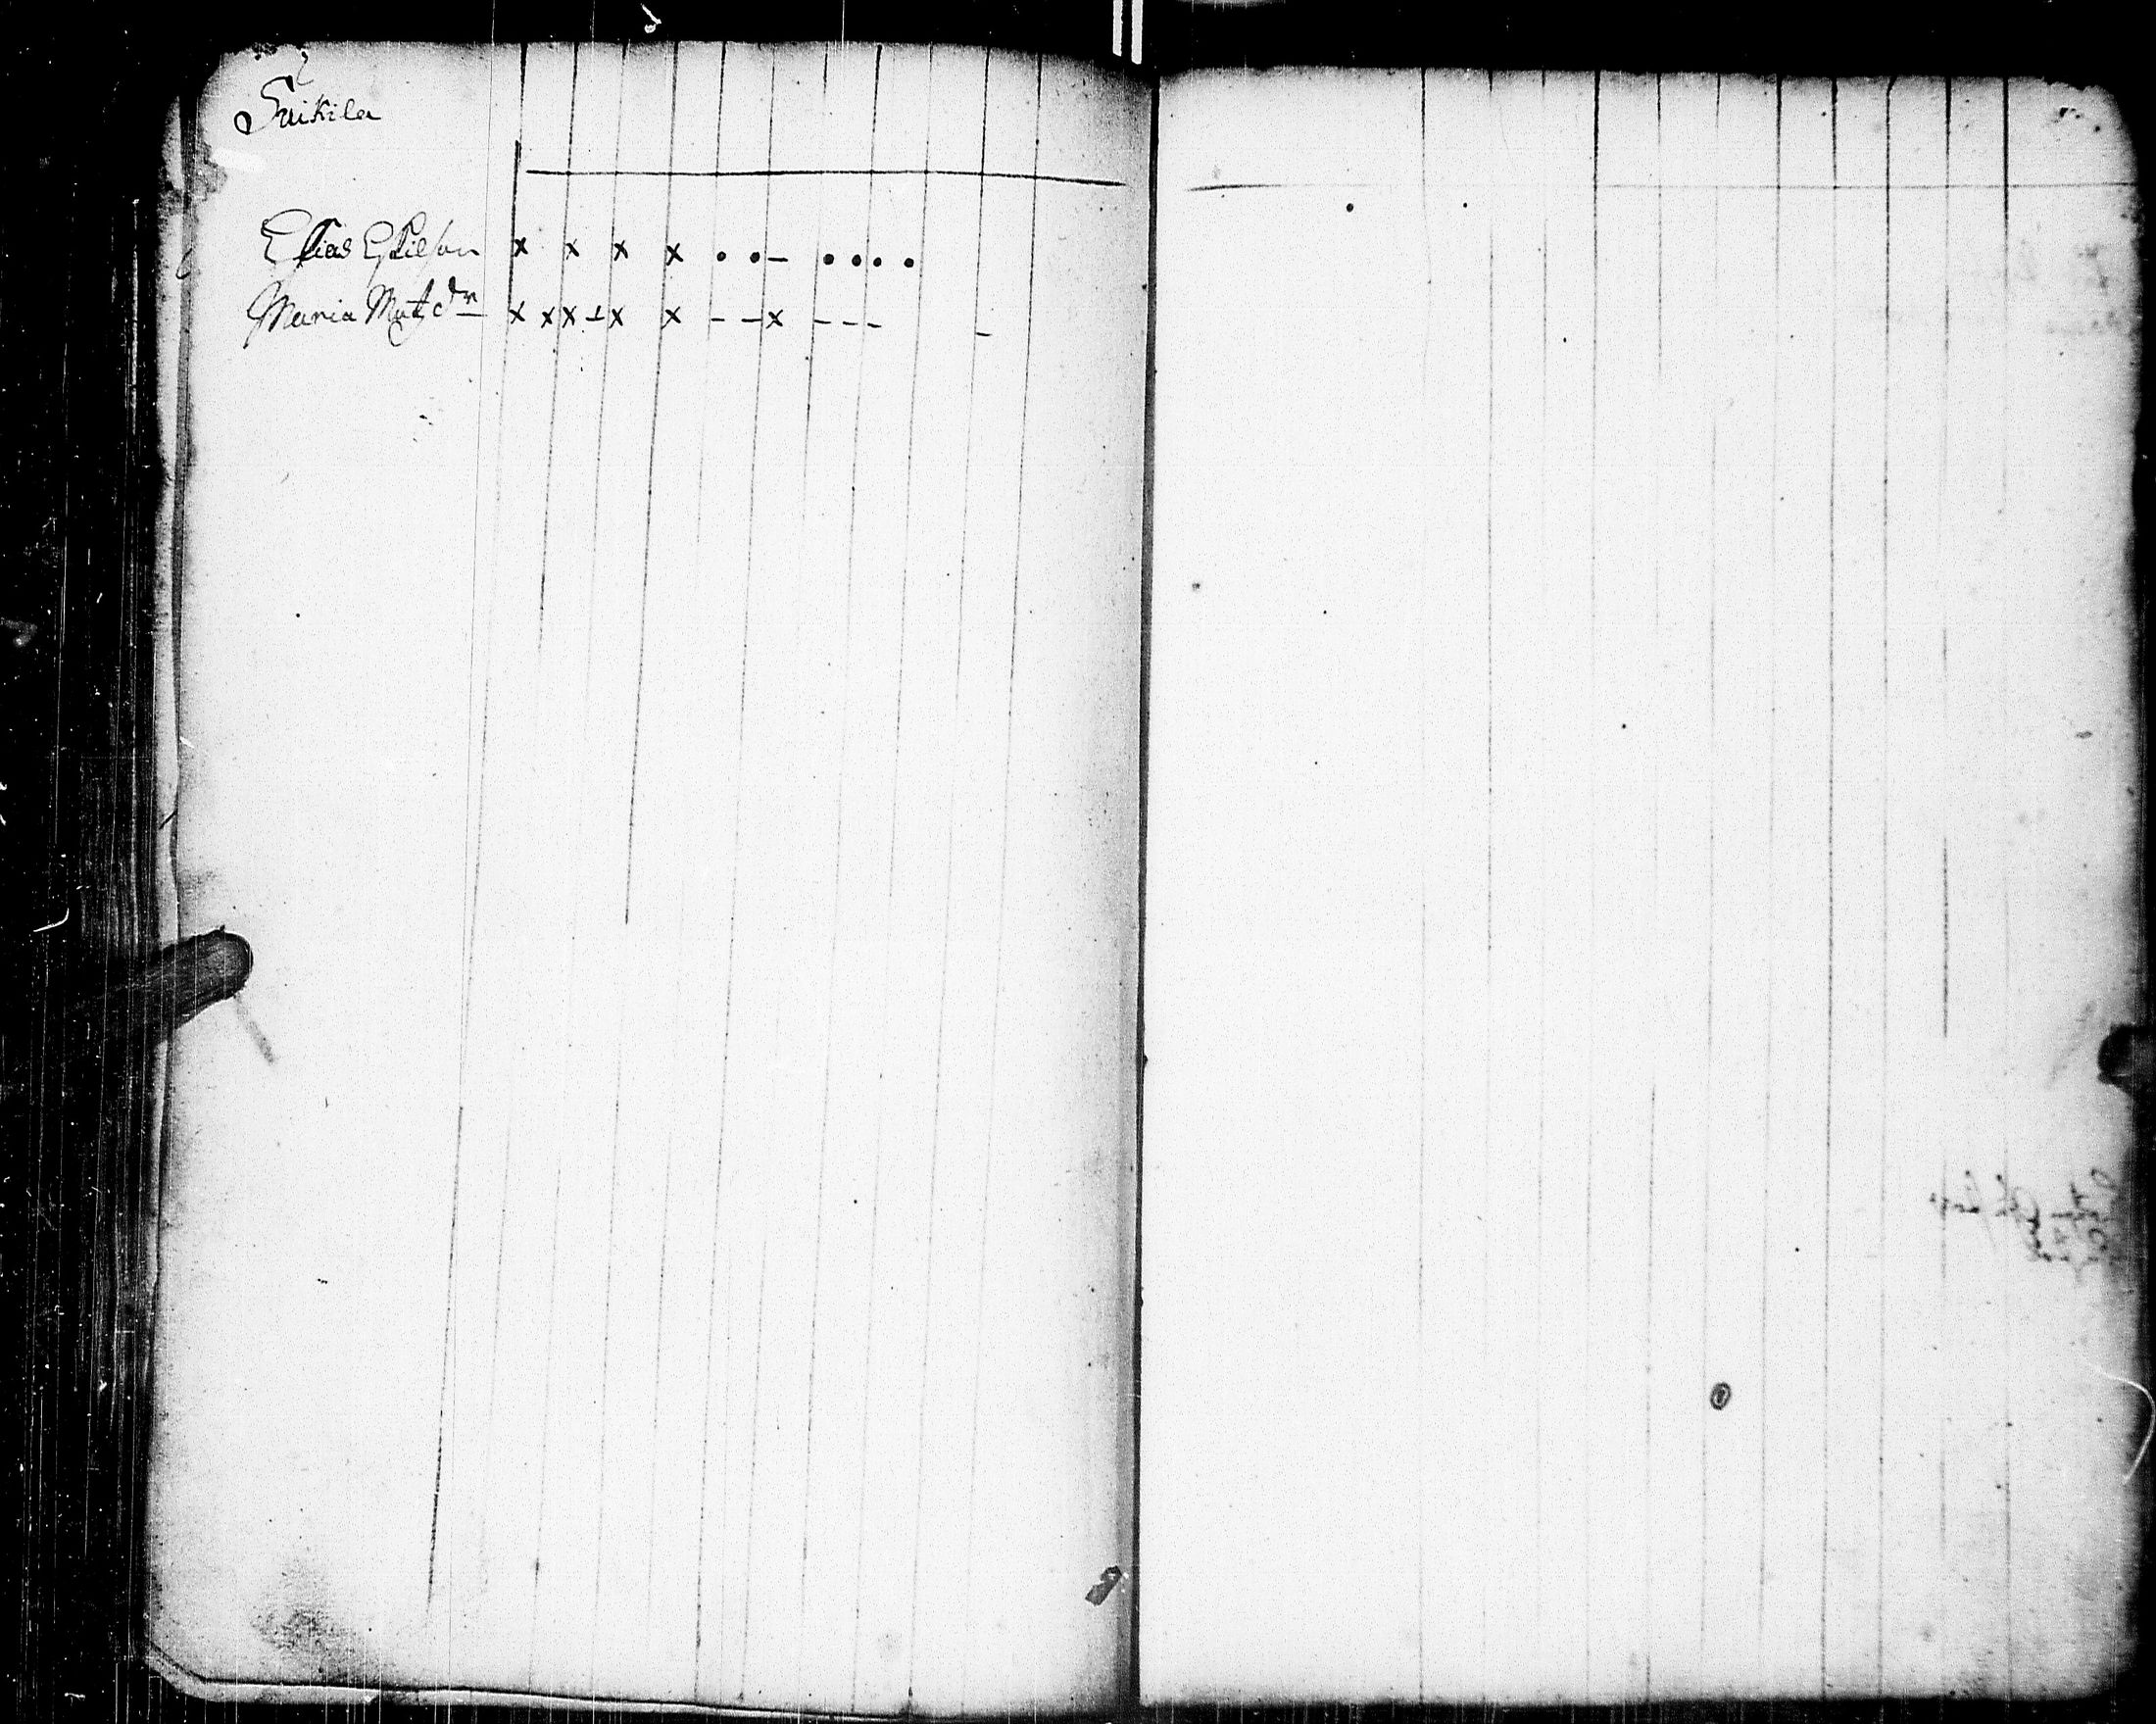 Suikila
Elias Eskilson x x x x • • – • • • •
Maria Matzdr x x x – x x – – x – – – –